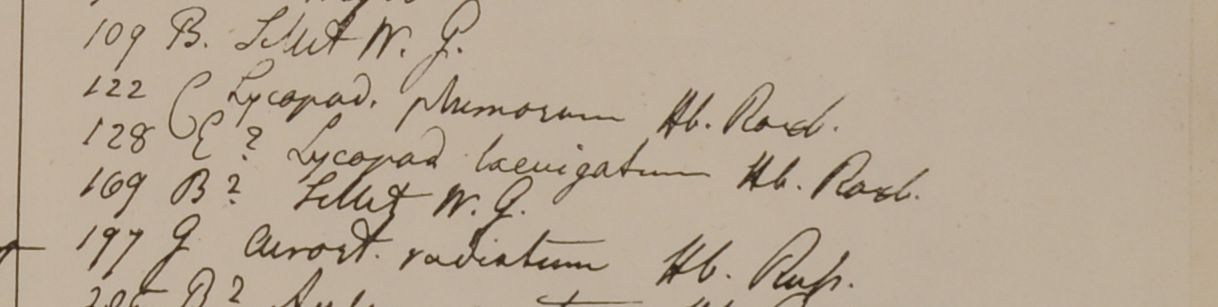 109 B. Sillet W. G.
122 C Lycopod. plumosum Hb. Roxb.
128 E? Lycopod laevigatum Hb. Roxb.
169 B? Sillet W. G.
197 G radiatum Hb.
B?